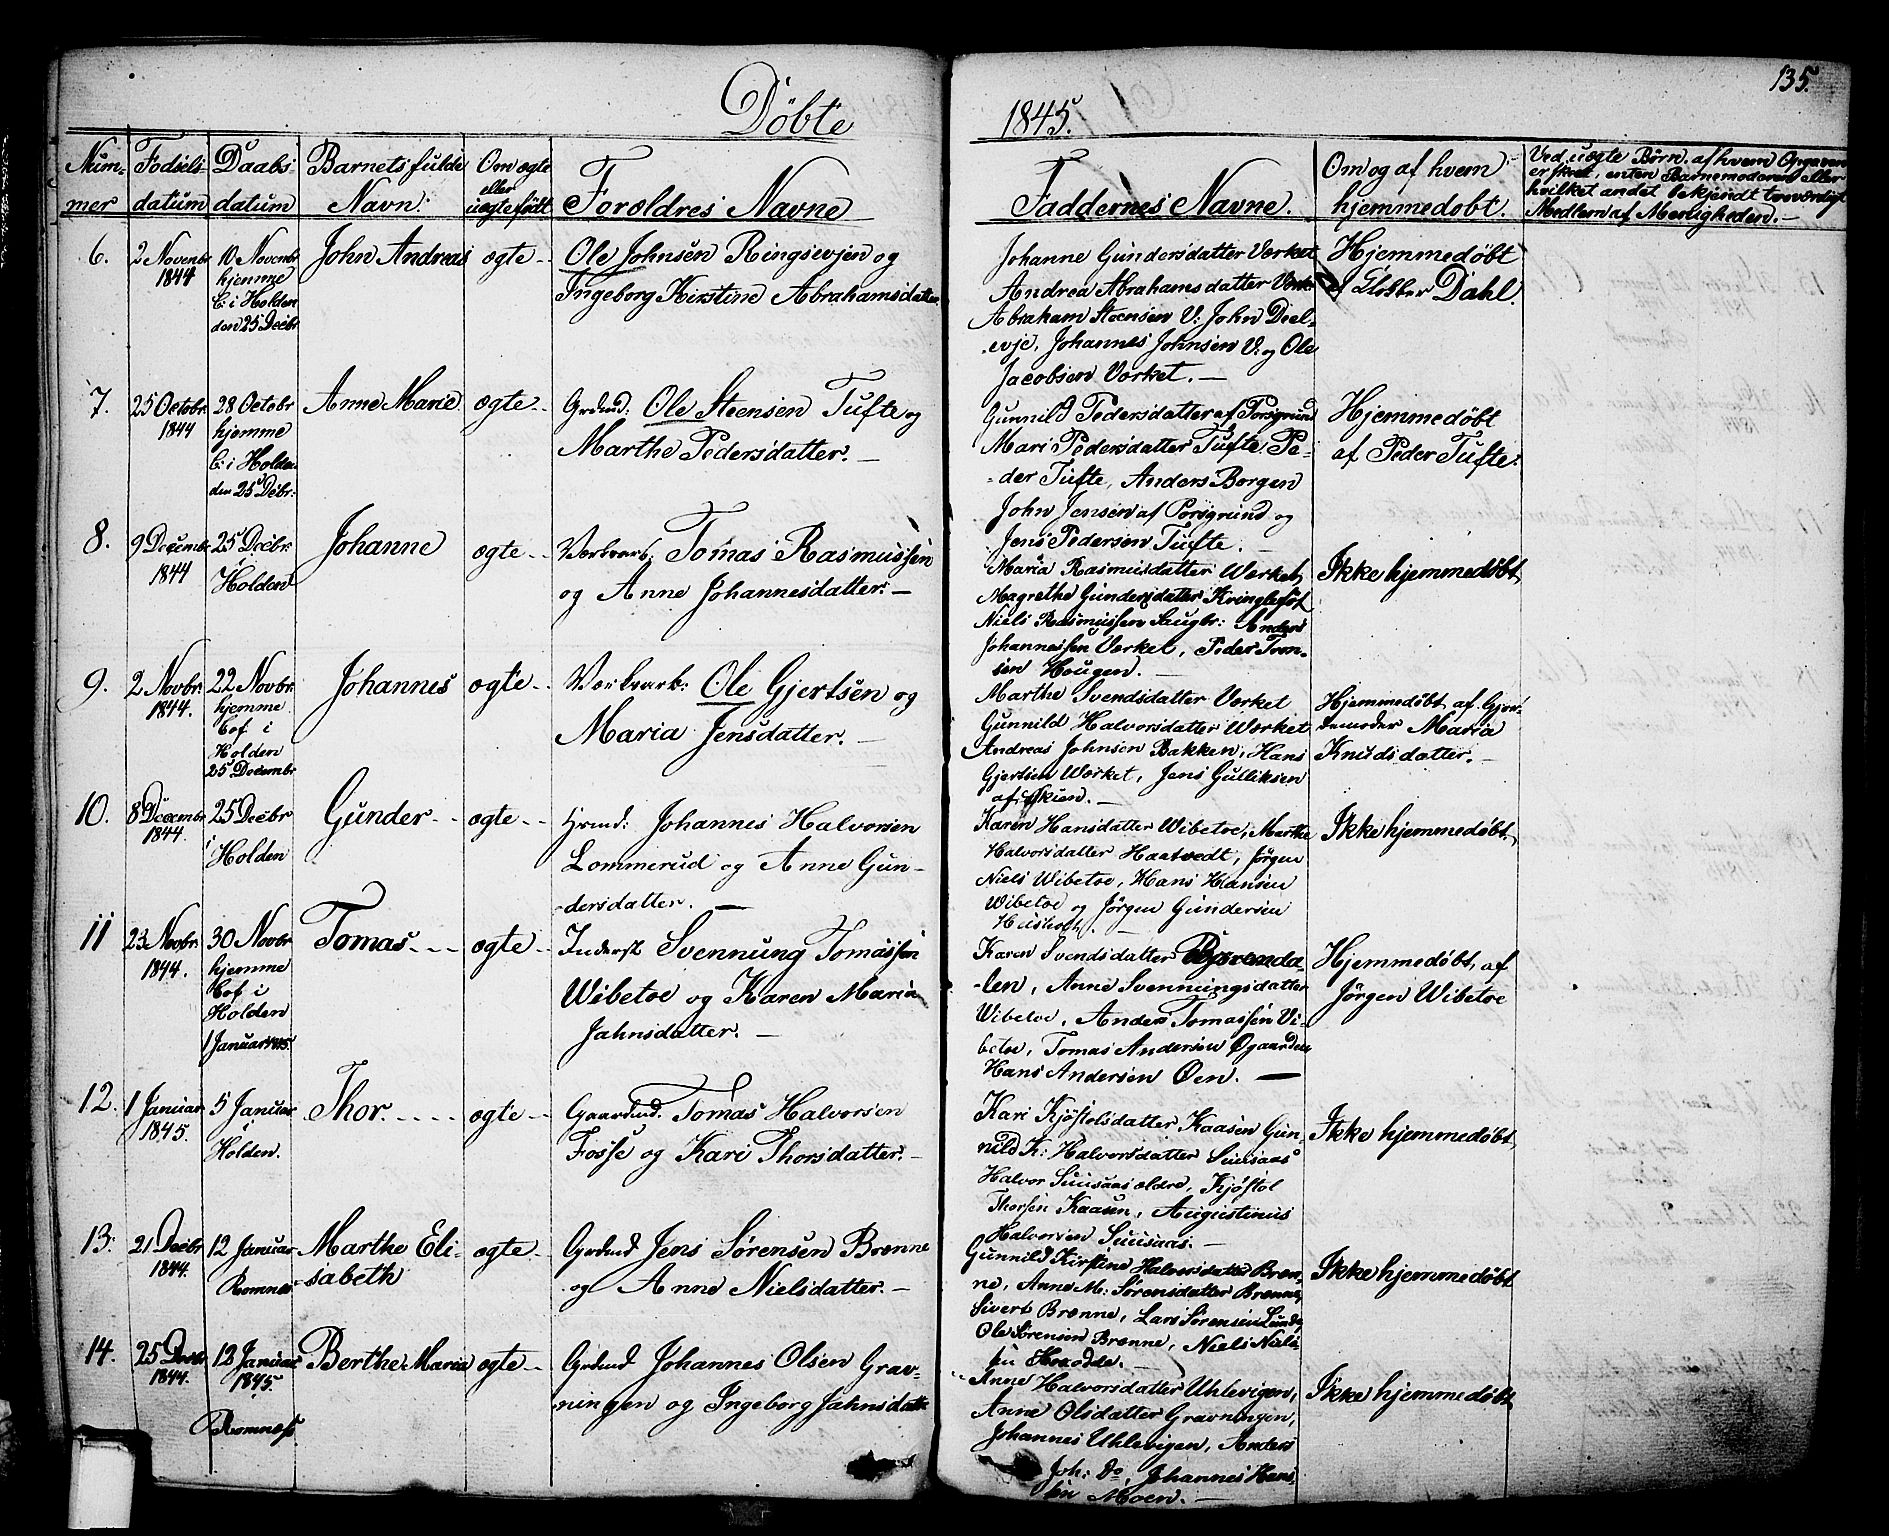 135.
Döbte 1845.
Num-
mer
Fodsels-
datum
Daabs
datum
Barnets fulde
Navn.
Om ægte
eller
uægte födt
Forældres Navne
Faddernes Navne.
Om og af hvem
hjemmedøbt.
Ved uægte Børn, af hvem Opgaven
er skeet, enten Barnemoderen eller
hvilket andet bekjendt troværdigt
Medlem af Menigheden.
6.
2 Novembr
1844
10 Novembr
hjemme
C: i Holden
den 25 Decbr
John Andreas
ægte
Ole Johnsen Ringsevjen og
Ingeborg Kirstine Abrahamsdatter
Johanne Gundersdatter Værket
Andrea Abrahamsdatter Værk
Abraham Steensen V: John Deel-
evje, Johannes Johnsen V: og Ole
Jacobsen Værket.
Hjemmedøbt
af Klokker Dahl.
7.
25 Octobr
1844
28 Octobr
hjemme
C: i Holden
den 25 Decbr:
Anne Marie
ægte
Grdmd: Ole Steensen Tufte og
Marthe Pedersdatter.
Gunnild Pedersdatter af Porsgrund
Mari Pedersdatter Tufte, Pe-
der Tufte, Anders Borgen
John Jensen af Porsgrund og
Jens Pedersen Tufte.
Hjemmedøbt
af Peder Tufte.
8.
9 Decembr
1844
25 Decbr:
i
Holden
Johanne
ægte
Værksarb: Tomas Rasmussen
og Anne Johannesdatter.
Maria Rasmusdatter Værket
Magrethe Gundersdatter Kringlefot
Niels Rasmussen Saugbr: Anders
Johannessen Værket, Peder Tron-
sen Hougen.
Ikke hjemmedøbt
9.
2 Novbr.
1844.
22 Novbr.
hjemme
Cof i
Holden
25 Decembr
Johannes
ægte
Værksarb: Ole Gjertsen og
Maria Jensdatter.
Marthe Svendsdatter Værket
Gunnild Halvorsdatter Værket
Andreas Johnsen Bakken, Hans
Gjertsen Værket, Jens Gulliksen
af Skien.
Hjemmedøbt af Gjor-
demoder Maria
Knudsdatter.
10.
8 Decembr
1844.
25 Decbr
i
Holden
Gunder
ægte
Hmd: Johannes Halvorsen
Lommerud og Anne Gun-
dersdatter.
Karen Hansdatter Wibetoe, Marthe
Halvorsdatter Haatvedt, Jørgen
Niels Wibetoe, Hans Hansen
Wibetoe og Jörgen Gundersen
Ikke hjemmedøbt.
11
23 Novbr.
1844.
30 Novbr
hjemme
Cof i
Holden
1 Januar 1845.
Tomas
ægte
Inderst Svennung Tomassen
Wibetoe og Karen Maria
Jahnsdatter.
Karen Svendsdatter
-len, Anne Svennungsdatter
Wibetoe, Anders Tomassen Vi-
betoe, Tomas Andersen Øgaarden
Hans Andersen Øen.
Hjemmedøbt af
Jörgen Wibetoe
12.
1 Januar
1845.
5 Januar
i
Holden.
Thor.
ægte
Gaardmd. Tomas Halvorsen
Fosse og Kari Thorsdatter.
Kari Kjøstolsdatter Kaasen Gun-
nild K: Halvorsdatter Suusaas
Halvor Suusaas ældre, Kjøstol
Thorsen Kaasen, Augustinus
Halvorsen Suusaas.
Ikke hjemmedøbt,
13.
21 Decbr
1844.
12 Januar
Romnæs
Marthe Eli-
sabeth
ægte
Grdmd Jens Sørensen Brænne
og Anne Nielsdatter.
Gunnild Kirstine Halvorsdatter Bræn-
ne, Anne M: Sørensdatter Brænne,
Sivert Brænne, Lars Sørensen Lunde
Ole Sørensen Brænne, Niels Niel-
sen
Ikke hjemmedøbt
14.
25 Decbr
1844.
12 Januar
1845.
Romnæs
Berthe Maria
ægte
Grdmd Johannes Olsen Grav-
ningen og Ingeborg Jahnsdatt
Anne Halvorsdatter Uhlevigen,
Anne Olsdatter Gravningen,
Johannes Uhlevigen, Anders
Joh: do, Johannes Han-
sen Moen.
Ikke hjemmedøbt